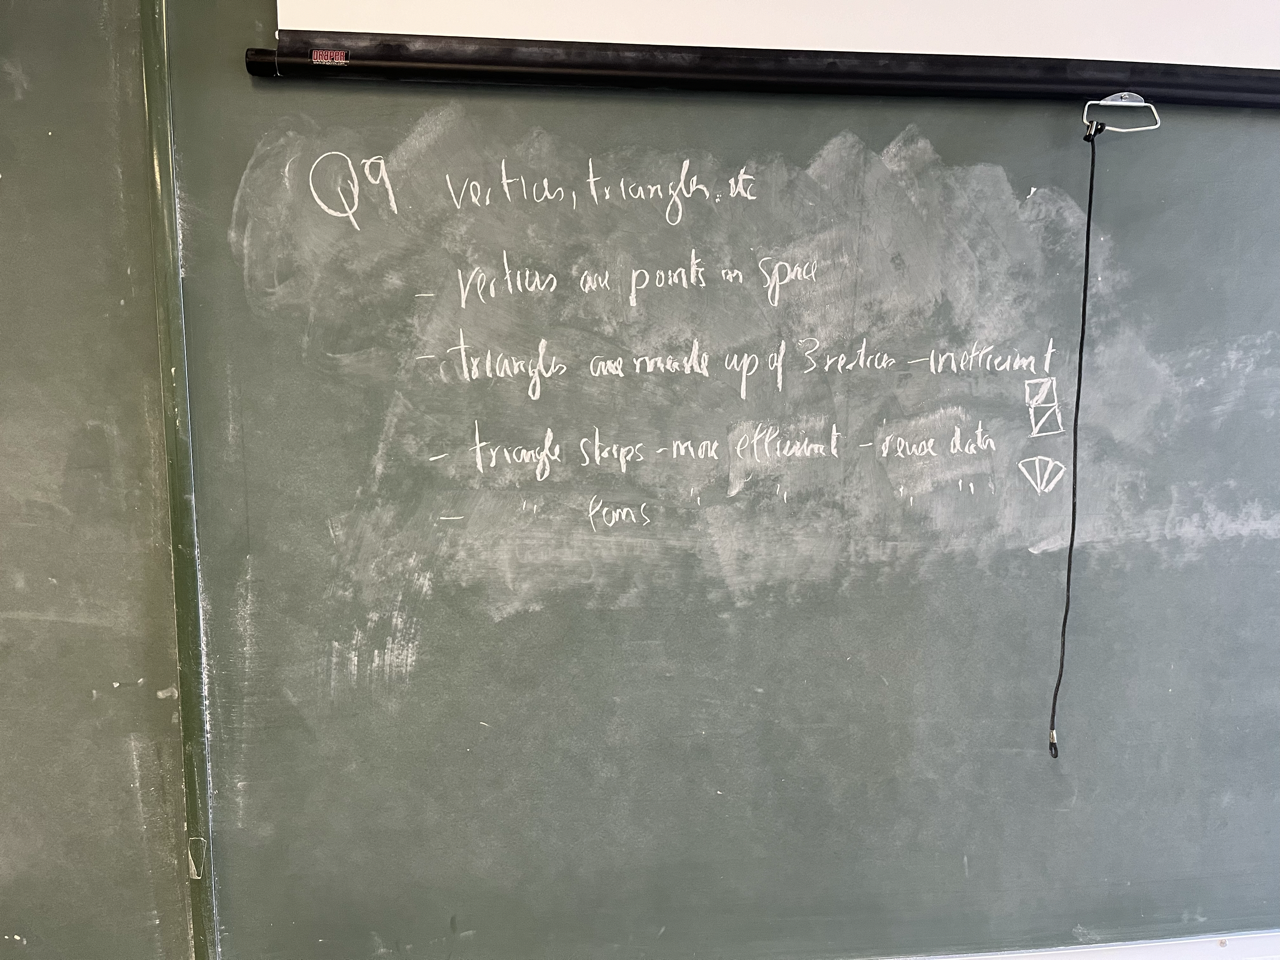 DRAPER
Q9 vertices, triangles, etc
- vertices are points in space
- triangles are made up of 3 vertices - inefficient
- triangle strips - more efficient - reuse data
- " fans " " " "